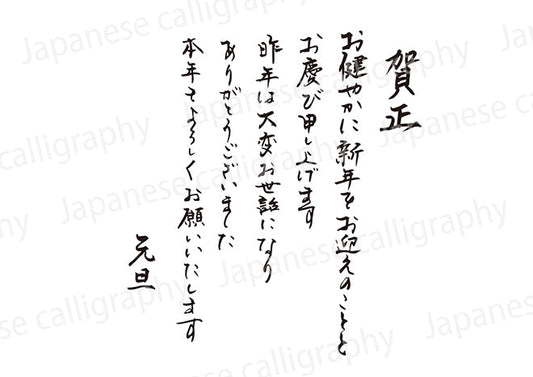 賀正
お健やかに新年をお迎えのことと
お慶び申し上げます
昨年は大変お世話になり
ありがとうございました
本年もよろしくお願いいたします
元旦
Japanese calligraphy
Japanese calligraphy
Japanese calligraphy
Japanese calligraphy
Japanese calligraphy
Japanese calligraphy
Japanese calligraphy
Japanese calligraphy